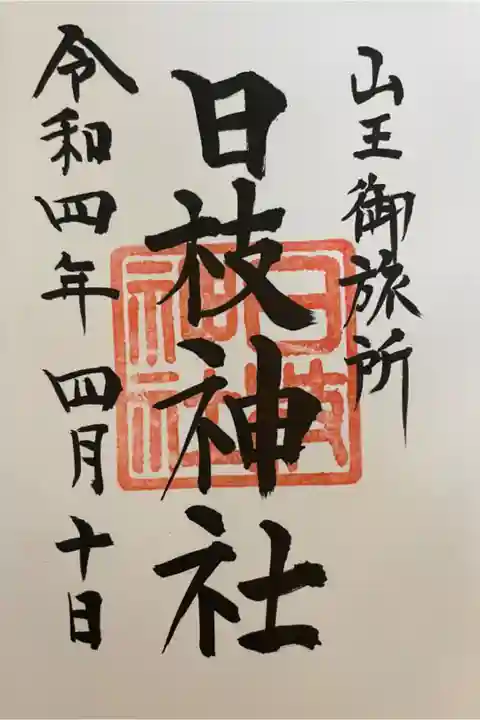 山王御旅所
日枝神社
日枝神社
令和四年四月十日